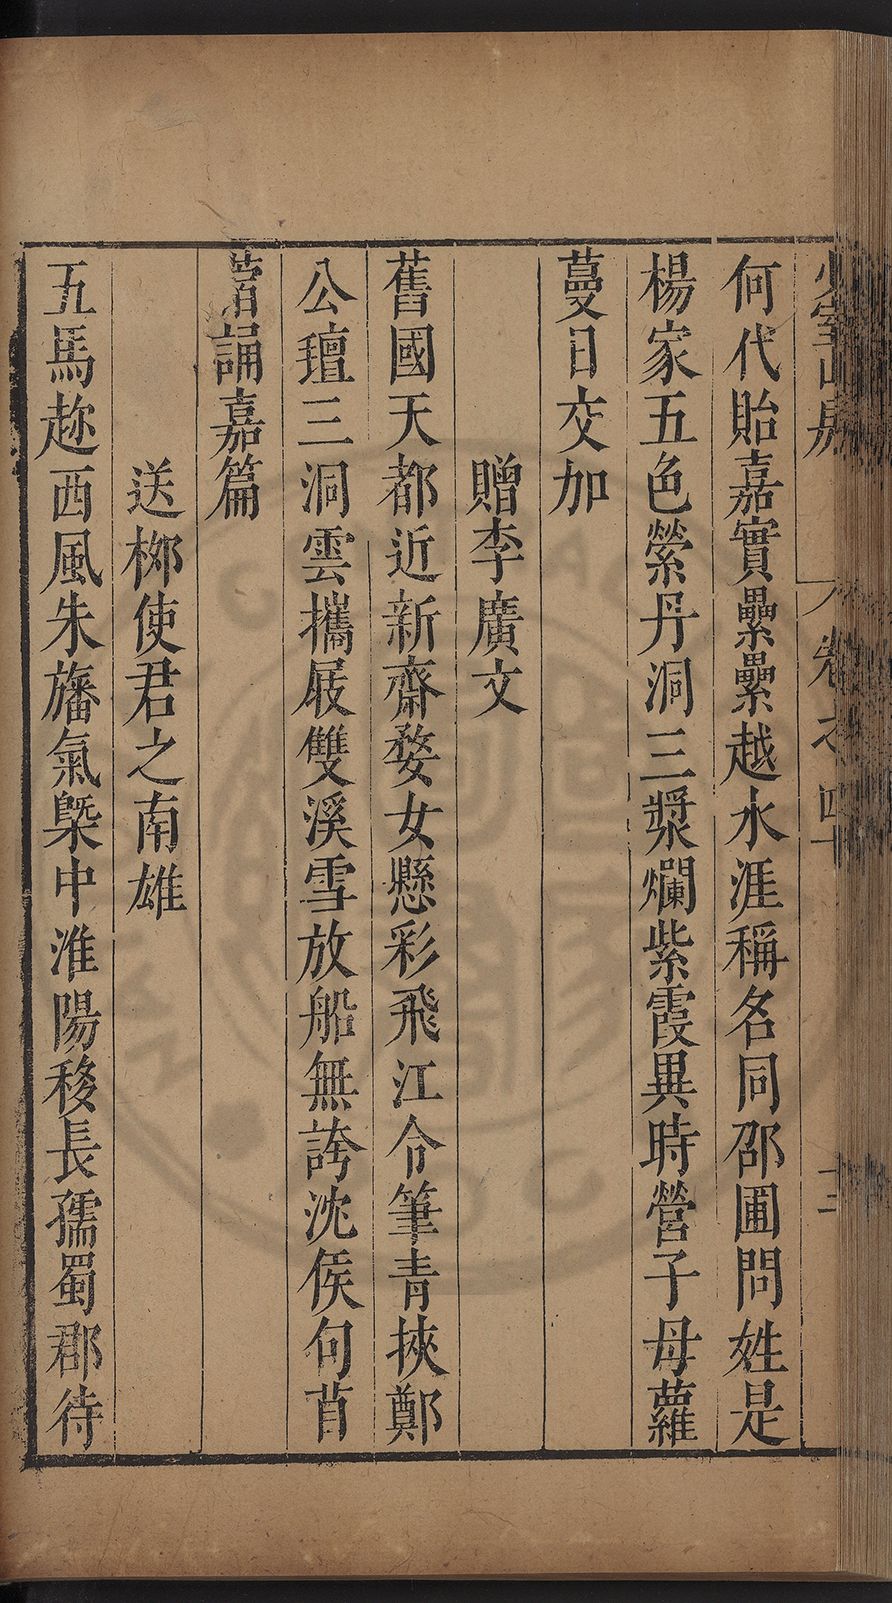 少室山房 卷之四十 十二
何代貽嘉實纍纍越水涯稱名同邵圃問姓是
楊家五色縈丹洞三漿爛紫霞異時營子母蘿
蔓日交加
贈李廣文
舊國天都近新齋婺女懸彩飛江令筆青挾鄭
公璮三洞雲攜屐雙溪雪放船無誇沈侯句苜
蓿誦嘉篇
送桞使君之南雄
五馬趂西風朱旛氣槩中淮陽移長孺蜀郡待